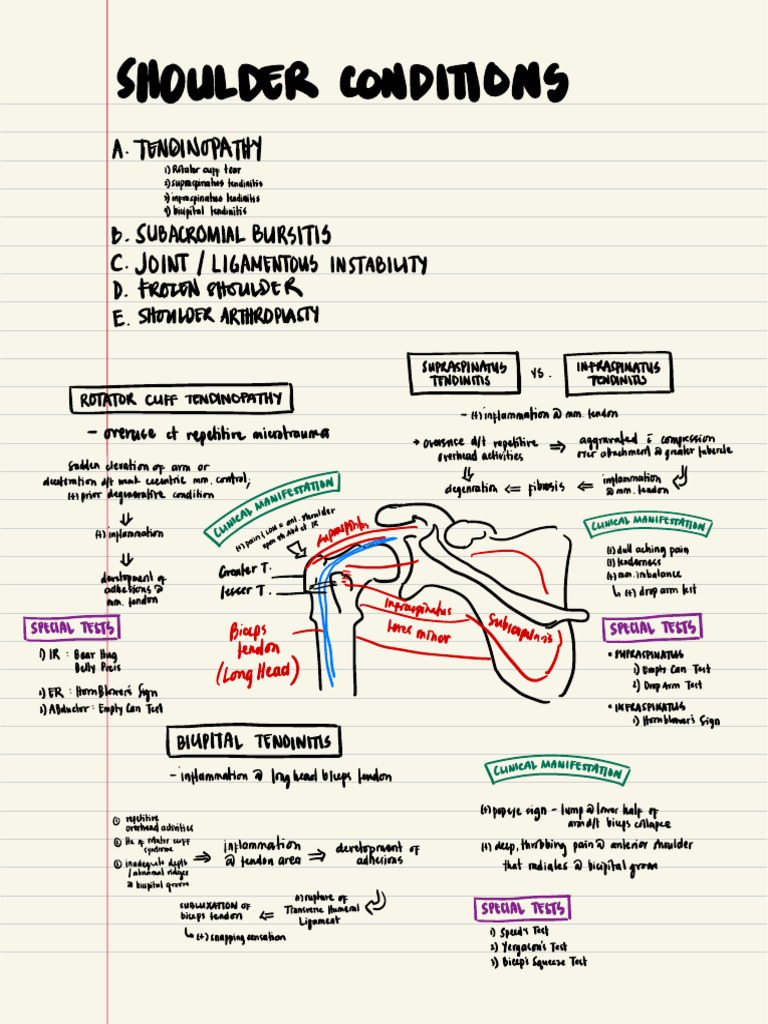 SHOULDER CONDITIONS
A. TENDINOPATHY
1) Rotator cuff tear
2) supraspinatus tendinitis
3) infraspinatus tendinitis
4) bicipital tendinitis
B. SUBACROMIAL BURSITIS
C. JOINT / LIGAMENTOUS INSTABILITY
D. FROZEN SHOULDER
E. SHOULDER ARTHROPLASTY
ROTATOR CUFF TENDINOPATHY
- overuse et repetitive microtrauma
sudden elevation of arm or
deceleration d/t weak eccentric mm. control,
(+) prior degenerative condition
⇓
(+) inflammation
⇓
development of
adhesions @
mm. tendon
CLINICAL MANIFESTATION
(+) pain, LOM @ ant. shoulder
upon sh. Abd et IR
SPECIAL TESTS
1) IR : Bear Hug
Belly Press
2) ER : HornBlower's Sign
3) Abductor : Empty Can Test
SUPRASPINATUS TENDINITIS vs. INFRASPINATUS TENDINITIS
- (+) inflammation @ mm. tendon
→ overuse d/t repetitive
overhead activities
⇒ aggravated c̄ compression
over attachment @ greater tubercle
inflammation
@ mm. tendon
⇐ fibrosis ⇐
degeneration
CLINICAL MANIFESTATION
(+) dull aching pain
(+) tenderness
(+) mm. imbalance
↳ (+) drop arm test
SPECIAL TESTS
• SUPRASPINATUS
1) Empty Can Test
2) Drop Arm Test
• INFRASPINATUS
1) Hornblower's Sign
Supraspinatus
Greater T.
Lesser T.
Biceps
tendon
(Long Head)
Infraspinatus
teres minor
Subscapularis
BICIPITAL TENDINITIS
- inflammation @ long head biceps tendon
① repetitive
overhead activities
② Hx of rotator cuff
syndrome
③ inadequate depth
/ abnormal ridges
@ bicipital groove
⇒ inflammation
@ tendon area
⇒ development of
adhesions
(+) rupture of
Transverse Humeral
Ligament
⇐ SUBLUXATION of
biceps tendon
↳ (+) snapping sensation
CLINICAL MANIFESTATION
(+) popeye sign - lump @ lower half of
arm d/t biceps collapse
(+) deep, throbbing pain @ anterior shoulder
that radiates @ bicipital groove
SPECIAL TESTS
1) Speed's Test
2) Yergason's Test
3) Bicep's Squeeze Test